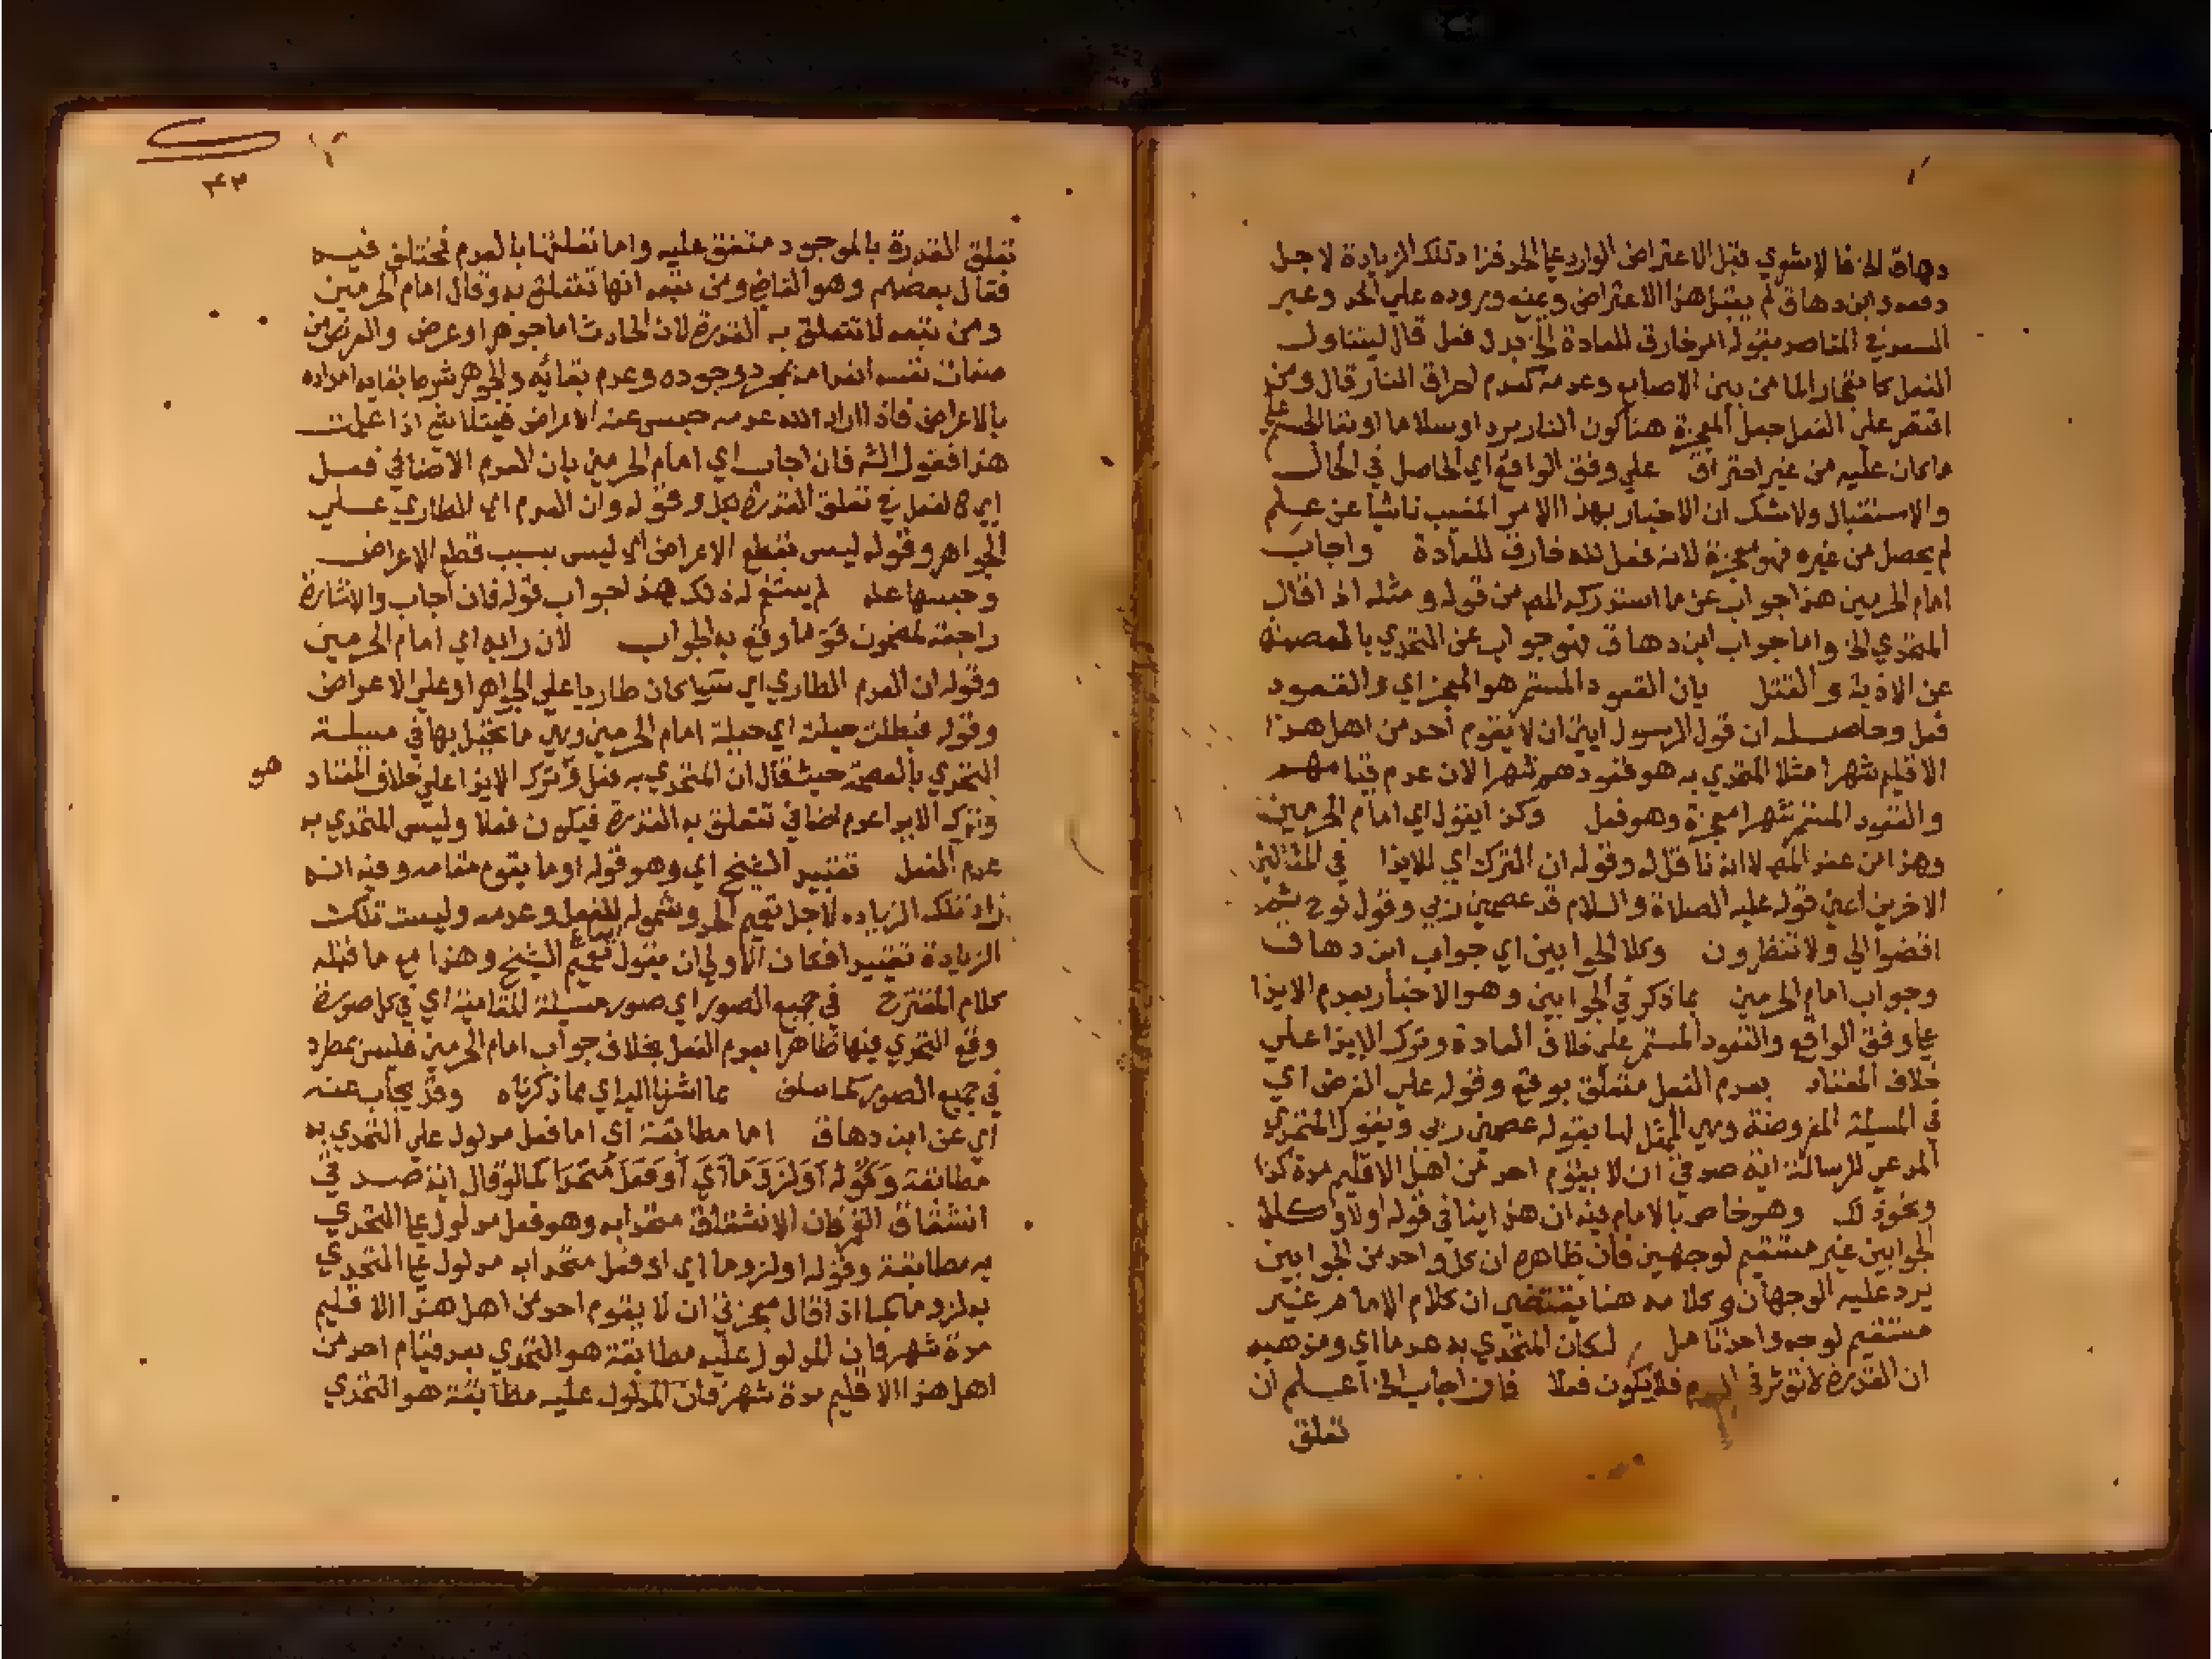 دهاق الخ فالاشوي قبل الاعتراض الوارد علي الحد فزاد تلك الزيادة لاجل
دفعه وابن دهاق لم يقبل هذا الاعتراض ويمنع وروده علي الحد وعبر
السعد في المقاصد بقوله امر خارق للعادة الخ بدل فعل قال ليتناول
الفعل كانفجار الما من بين الاصابع وعدمه كعدم احراق النار قال ومن
اقتصر علي الفعل جعل المعجزة هنا كون النار بردا وسلاما او بقا الجسم علي
ماكان عليه من غير احتراق علي وفق الواقع اي الحاصل في الحال
والاستقبال ولا شك ان الاخبار بهذا الامر المغيب ناشيا عن علم
لم يحصل من غيره فهو معجزة لانه فعل لله خارق للعادة واجاب
امام الحرمين هذا جواب عن ما استدركه المص من قوله ومثله اذا قال
المتحدي الخ واما جواب ابن دهاق فهو جواب عن التحدي بالعصمة
عن الاذية والقتل بان القعود المستمر هو المعجز اي والقعود
فعل وحاصله ان قول الرسول ايتي ان لا يقوم احد من اهل هذا
الاقليم شهرا مثلا المتحدي به هو قعودهم شهرا لان عدم قيامهم
والقعود المستمر شهرا معجزة وهو فعل وكذا يقول اي امام الحرمين
وهذا من عند المص لا انه ناقل له وقوله ان الترك اي للايذا في المثالين
الاخرين اعني قوله عليه الصلاة والسلام قد عصمني ربي وقول نوح ثم
اقضوا الي ولا تنظرون وكلا الجوابين اي جواب ابن دهاق
وجواب امام الحرمين بما ذكر في الجوابين وهو الاخبار بعدم الايذا
علي وفق الواقع والقعود المستمر علي خلاف العادة وترك الايذا علي
خلاف المعتاد بعدم الفعل متعلق بوقع وقوله علي الفرض اي
في المسيلة المفروضة وهي الممثل لها بقوله عصمني ربي وبقول المتحدي
المدعي للرسالة اية صدقي ان لا يقوم احد من اهل الاقليم مدة كذا
ونحو ذلك وهو خاص بالامام فيه ان هذا ينافي قوله اولا وكلا
الجوابين غير مستقيم لوجهين فان ظاهره ان كل واحد من الجوابين
يرد عليه الوجهان وكلامه هنا يقتضي ان كلام الامام غير
مستقيم لوجه واحد تامل لكان المتحدي به عدما اي ومذهبه
ان القدرة لا تؤثر في العدم فلا يكون فعلا فان اجاب الخ اعلم ان
تعلق
٤٣
تعلق القدرة بالموجود متفق عليه واما تعلقها بالعدم فمختلف فيه
فقال بعضهم وهو القاضي ومن تبعه انها تتعلق به وقال امام الحرمين
ومن تبعه لا تتعلق به القدرة لان الحادث اما جوهر او عرض والعرض من
صفات نفسه انعدامه بمجرد وجوده وعدم بقائه والجوهر شرط بقايه امداده
بالاعراض فاذا اراد الله عدمه حبس عنه الاعراض فيتلاشي اذا علمت
هذا فقول الش فان اجاب اي امام الحرمين بان العدم الاضافي فعل
اي كالفعل في تعلق القدرة بكل وقوله وان العدم اي الطاري علي
الجواهر وقوله ليس بقطع الاعراض اي ليس بسبب قطع الاعراض
وحبسها عنه لم يستقم له ذلك هذا جواب قوله فان اجاب والاشارة
راجعة لمضمون قوة ما وقع به الجواب لان رايه اي امام الحرمين
وقوله ان العدم الطاري اي سوا كان طاريا علي الجواهر او علي الاعراض
وقوله فبطلت حيلته اي حيلة امام الحرمين وهي ما تحيل بها في مسيلة
التحدي بالعصمة حيث قال ان المتحدي به فعل وترك الايذا علي خلاف المعتاد
هو
وترك الايذا عدم اضافي تتعلق به القدرة فيكون فعلا وليس المتحدي به
عدم الفعل تغيير الشيخ اي وهو قوله او ما يقوم مقامه وفيه انه
زاد تلك الزياده لاجل تعميم الحد وشموله للفعل وعدمه وليست تلك
الزيادة تغييرا فكان الاولي ان يقول تعميم الشيخ وهذا مع ما قبله
كلام المقترح في جميع الصور اي صور مسيلة المقامية اي في كل صورة
وقع التحدي فيها ظاهرا بعدم الفعل بخلاف جواب امام الحرمين فليس بمطرد
في جميع الصور كما سلف بما اشرنا اليه اي بما ذكرناه وقد يجاب عنه
اي عن ابن دهاق اما مطابقة اي اما فعل مدلول علي التحدي به
مطابقة وقوله او لزوما اي او فعل متحدا كما لو قال اية صدقي
انشقاق القمر فان الانشقاق متحدا به وهو فعل مدلول علي التحدي
به مطابقة وقوله او لزوما اي او فعل متحدا به مدلول علي التحدي
به لزوما كما اذا قال معجزتي ان لا يقوم احد من اهل هذا الاقليم
مدة شهر فان المدلول عليه مطابقة هو التحدي بعدم قيام احد من
اهل هذا الاقليم مدة شهر فان المدلول عليه مطابقة هو التحدي